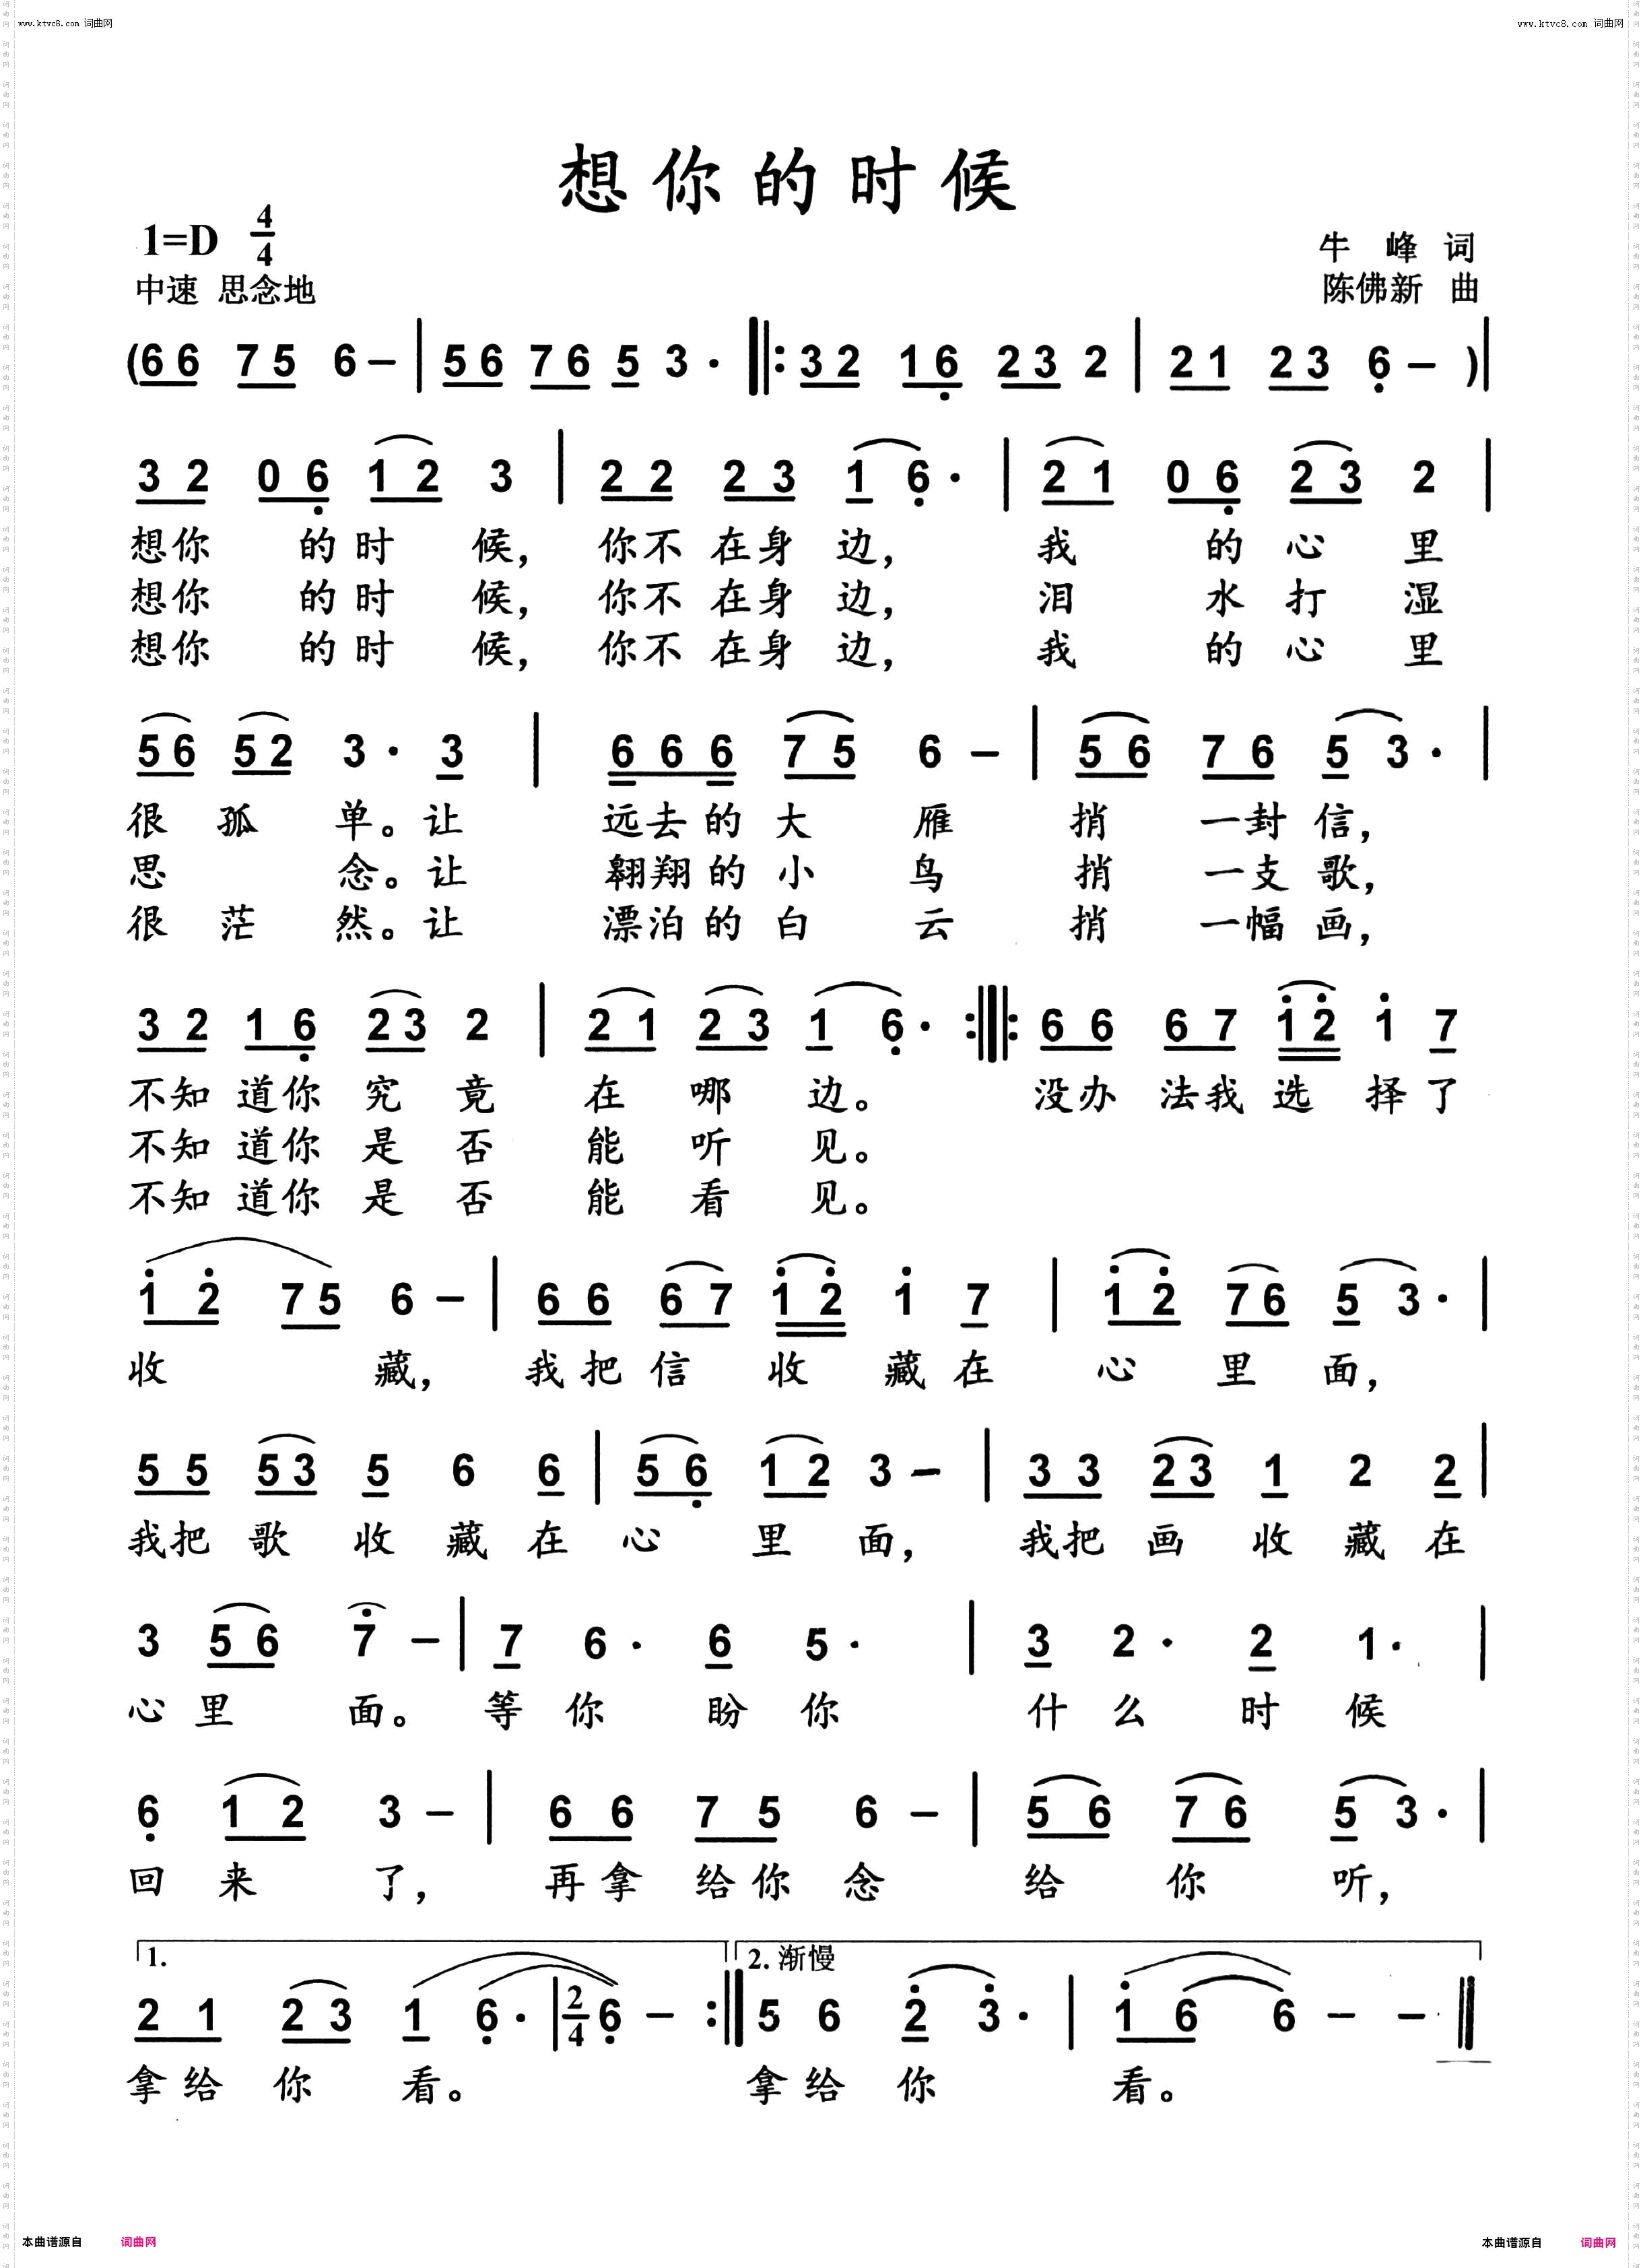 www.ktvc8.com 词曲网
www.ktvc8.com 词曲网
想你的时候
1=D 4/4
牛 峰 词
中速 思念地
陈佛新 曲
(66 75 6– | 56 76 5 3· ‖: 32 16 23 2 | 21 23 6 – )|
3 2 0 6 1 2 3 | 2 2 2 3 1 6· | 2 1 0 6 2 3 2 |
想你 的时 候, 你不 在身 边, 我 的心 里
想你 的时 候, 你不 在身 边, 泪 水打 湿
想你 的时 候, 你不 在身 边, 我 的心 里
56 52 3· 3 | 6 6 6 7 5 6 – | 5 6 7 6 5 3· |
很 孤 单。让 远去的大 雁 捎 一封信,
思 念。让 翱翔的小 鸟 捎 一支歌,
很 茫 然。让 漂泊的白 云 捎 一幅画,
3 2 1 6 23 2 | 2 1 2 3 1 6· :‖: 6 6 6 7 12 1 7
不知 道你 究 竟 在 哪 边。 没办 法我 选 择了
不知 道你 是 否 能 听 见。
不知 道你 是 否 能 看 见。
1 2 75 6 – | 6 6 6 7 12 1 7 | 1 2 76 5 3· |
收 藏, 我把 信 收 藏在 心 里 面,
5 5 53 5 6 6 | 5 6 1 2 3 – | 3 3 23 1 2 2 |
我把 歌 收 藏 在 心 里 面, 我把 画 收 藏 在
3 5 6 7 – | 7 6· 6 5· | 3 2· 2 1· |
心 里 面。 等 你 盼 你 什 么 时 候
6 1 2 3 – | 6 6 7 5 6 – | 5 6 7 6 5 3· |
回 来 了, 再拿 给你 念 给 你 听,
1. 2.渐慢
2 1 2 3 1 6· | 2/4 6 – :‖ 5 6 2 3· | 1 6 6 – – ‖
拿给 你 看。 拿给 你 看。
本曲谱源自 词曲网
本曲谱源自 词曲网